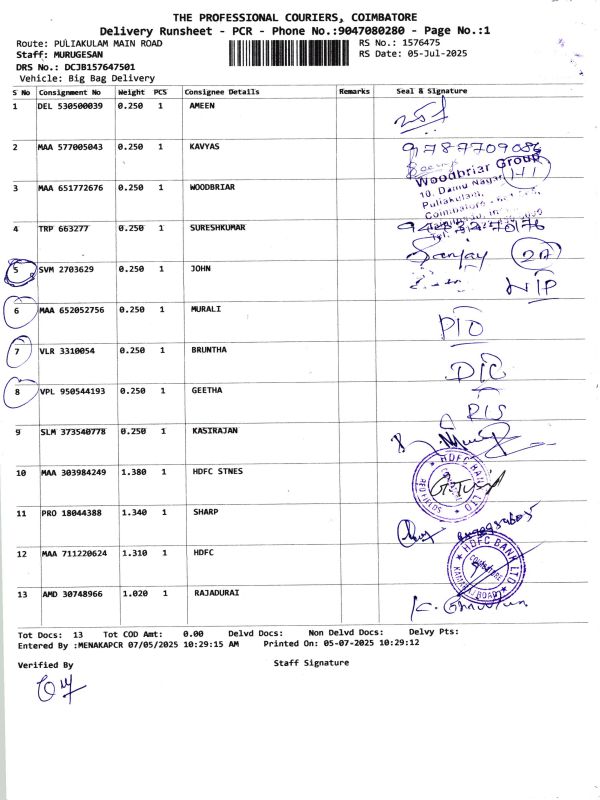 THE PROFESSIONAL COURIERS, COIMBATORE
Delivery Runsheet - PCR - Phone No.:9047080280 - Page No.:1
Route: PULIAKULAM MAIN ROAD RS No.: 1576475
Staff: MURUGESAN RS Date: 05-Jul-2025
DRS No.: DCJB157647501
Vehicle: Big Bag Delivery
S No Consignment No Weight PCS Consignee Details Remarks Seal & Signature
1 DEL 530500039 0.250 1 AMEEN
2 MAA 577005043 0.250 1 KAVYAS 9787709086
Woodbriar Group
3 MAA 651772676 0.250 1 WOODBRIAR 10, Damu Nagar
Puliakulam,
4 TRP 663277 0.250 1 SURESHKUMAR
Sanjay 2A
5 SVM 2703629 0.250 1 JOHN NIP
6 MAA 652052756 0.250 1 MURALI DIO
7 VLR 3310054 0.250 1 BRUNTHA DIC
8 VPL 950544193 0.250 1 GEETHA RIS
9 SLM 373540778 0.250 1 KASIRAJAN
10 MAA 303984249 1.380 1 HDFC STNES HDFC BANK LTD RED FIELDS
11 PRO 18044388 1.340 1 SHARP
12 MAA 711220624 1.310 1 HDFC HDFC BANK LTD COIMBATORE
13 AMD 30748966 1.020 1 RAJADURAI
Tot Docs: 13 Tot COD Amt: 0.00 Delvd Docs: Non Delvd Docs: Delvy Pts:
Entered By :MENAKAPCR 07/05/2025 10:29:15 AM Printed On: 05-07-2025 10:29:12
Verified By Staff Signature